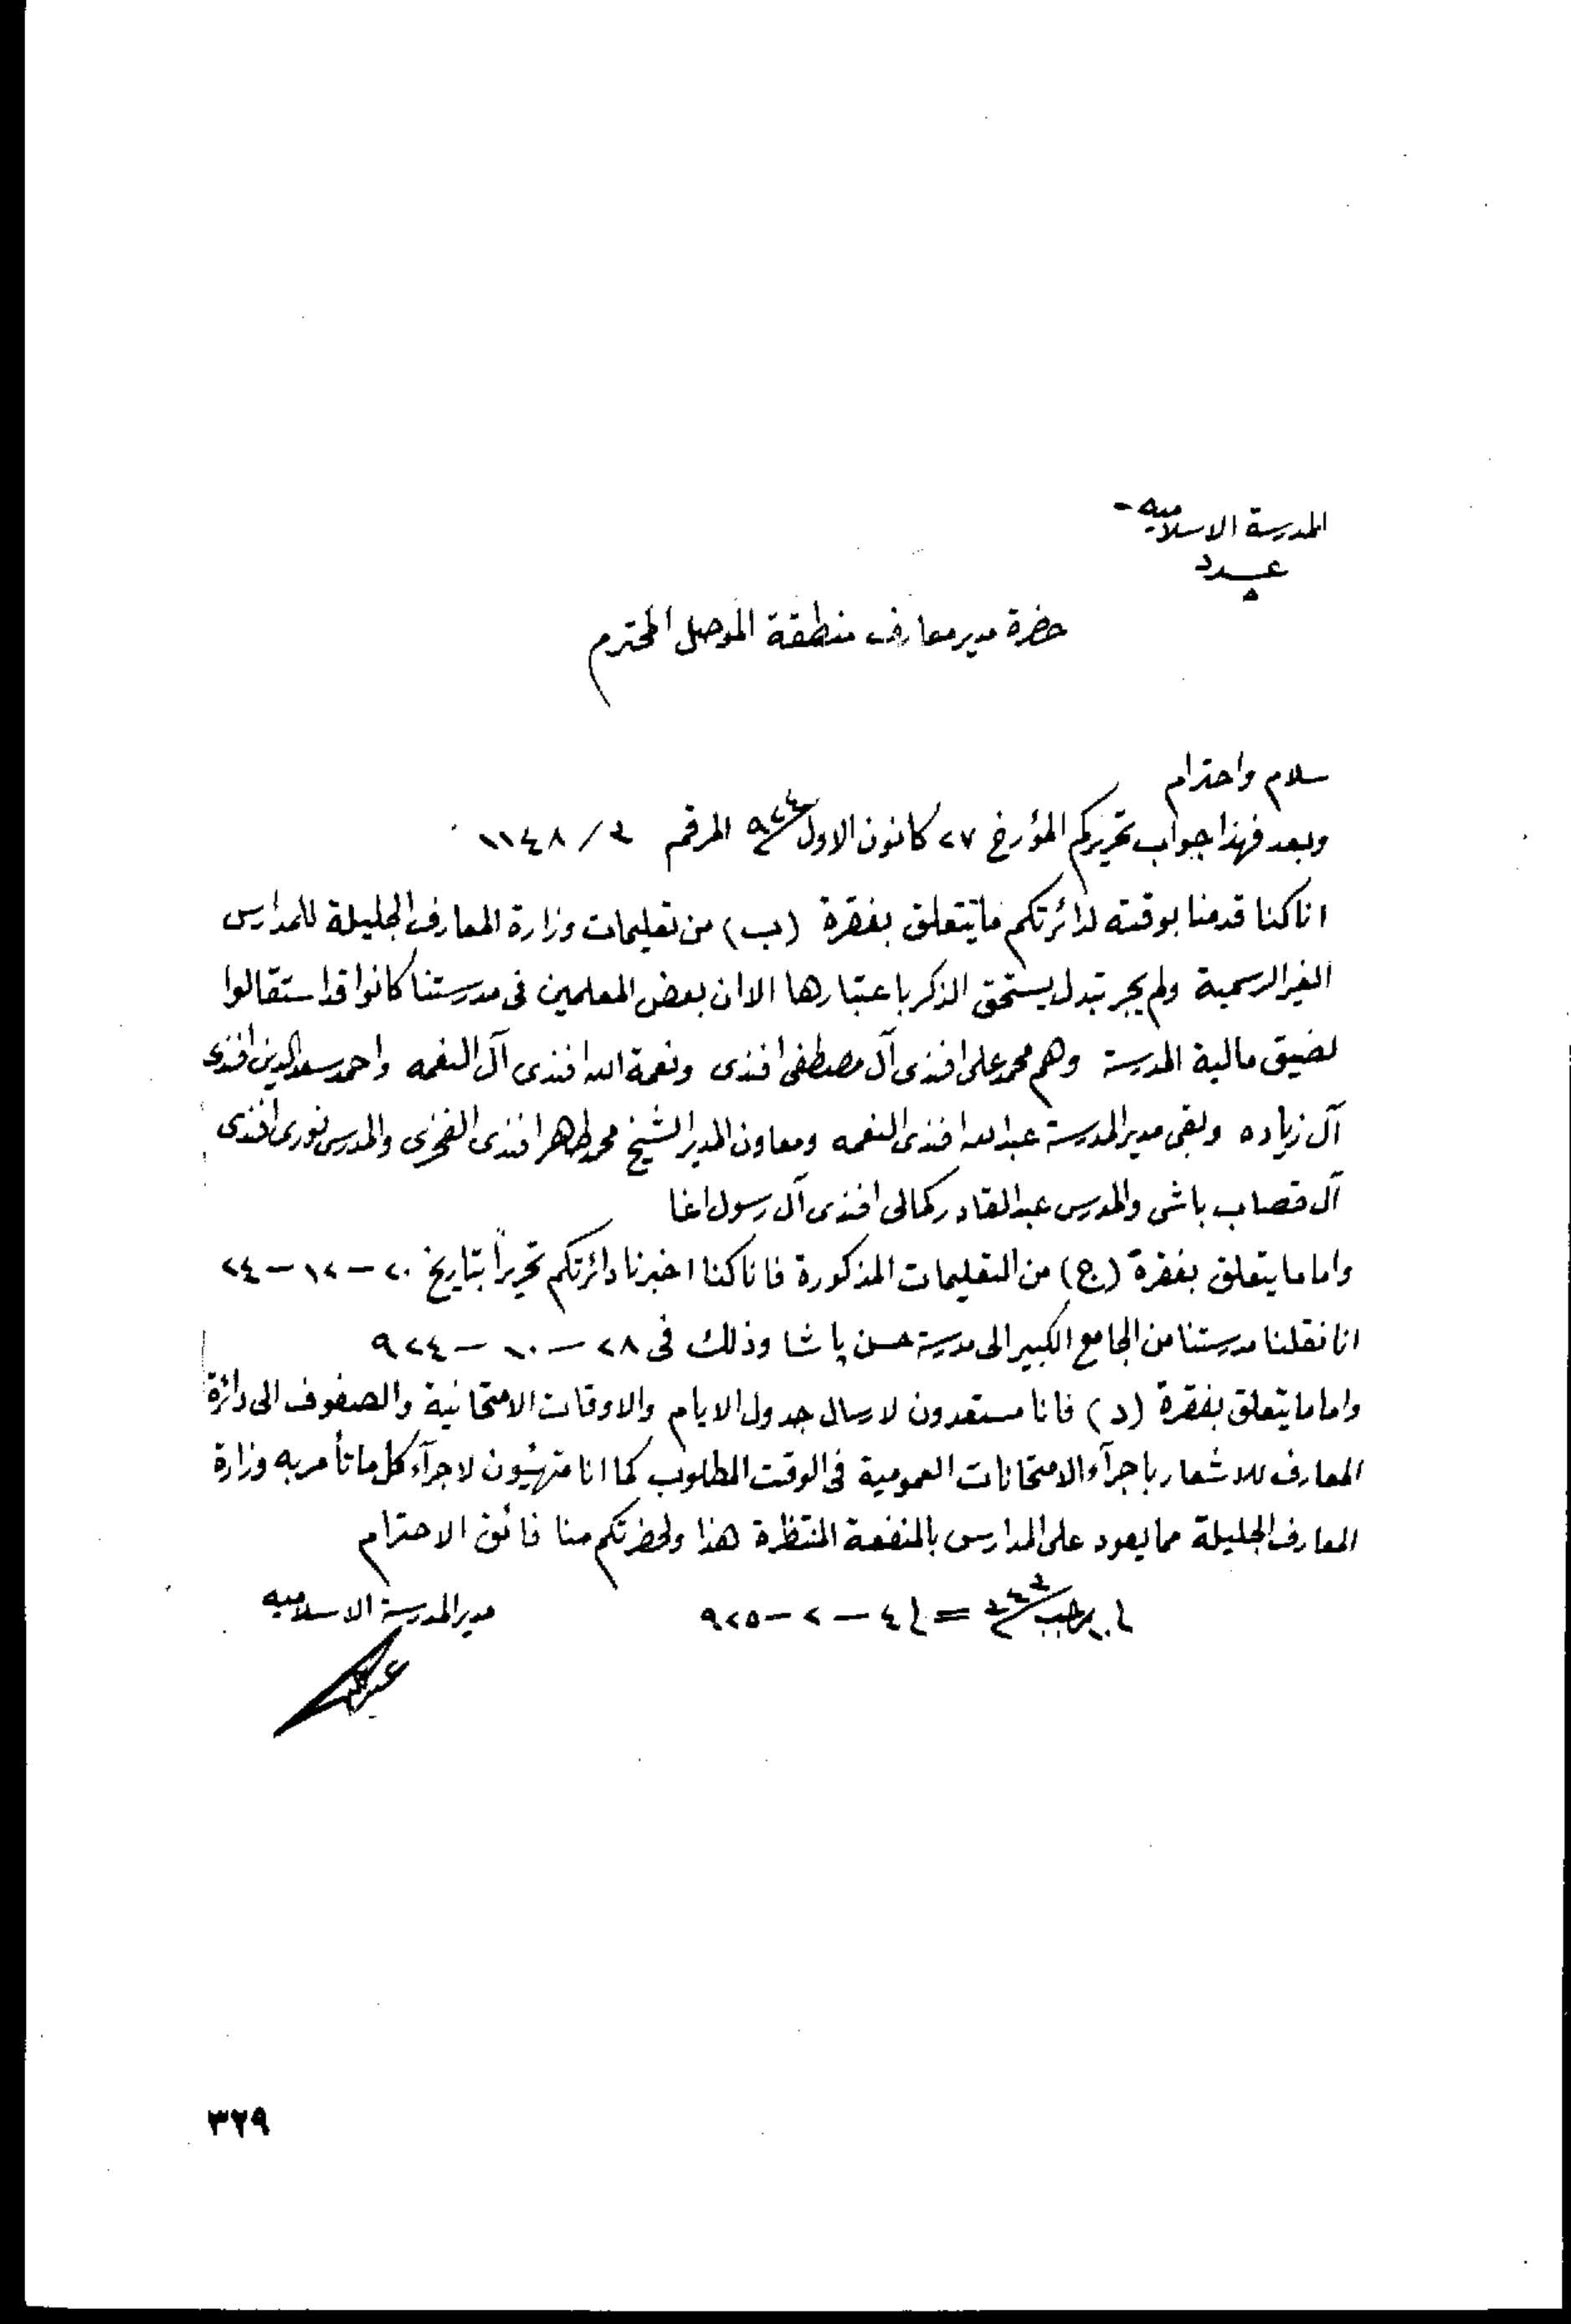 المدرسة الاسلاميه -
عدد
حضرة مدير معارف منطقة الموصل المحترم
سلام واحترام
وبعد فهذا جواب تحريركم المؤرخ ٢٧ كانون الاول ٩٢٤ المرقم ٣/ ١١٤٨
اناكنا قدمنا بوقته لدائرتكم مايتعلق بفقرة (ب) من تعليمات وزارة المعارف الجليلة للمدارس
الغير الرسمية ولم يجر تبدل يستحق الذكر باعتبارها الا ان بعض المعلمين فى مدرستنا كانوا قد استقالوا
لضيق مالية المدرسة وهم محمد على افندى آل مصطفى افندى ونعمة الله افندى آل النعمه واحمد سعد الدين افندى
آل زياده وبقى مدير المدرسة عبد الله افندى النعمه ومعاون المدير الشيخ محمد طاهر افندى الفخرى والمدرس نورى افندى
آل قصاب باشى والمدرس عبد القادر كمالى افندى آل رسول اغا
واما ما يتعلق بفقرة (ج) من التعليمات المذكورة فاناكنا اخبرنا دائرتكم تحريراً بتاريخ ٢٠ - ١٢ - ٢٤
انا نقلنا مدرستنا من الجامع الكبير الى مدرسة حسن پاشا وذلك فى ٢٨ - ١٠ - ٩٢٤
واما ما يتعلق بفقرة (د) فانا مستعدون لارسال جدول الايام والاوقات الامتحانية والصفوف الى دائرة
المعارف للاشعار باجرآء الامتحانات العمومية فى الوقت المطلوب كما انا متهيئون لاجرآء كل ما تأمر به وزارة
المعارف الجليلة مما يعود على المدارس بالمنفعة المنتظرة هذا ولحضرتكم منا فائق الاحترام
رجب = ٤ - ٢ - ٩٢٥ مدير المدرسة الاسلاميه
٣٢٩